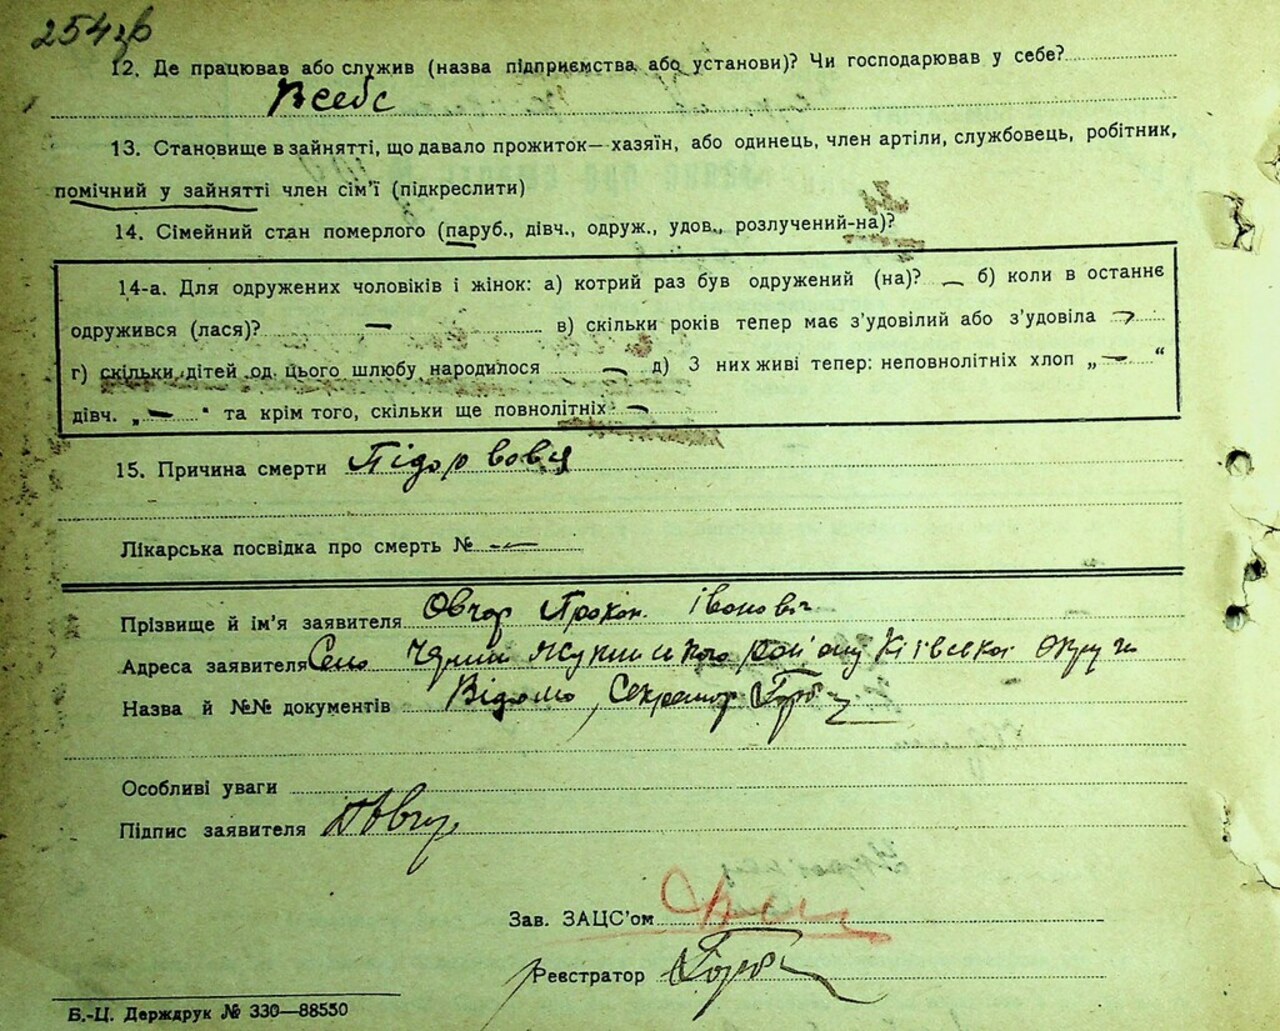 254зв
12. Де працював або служив (назва підприємства або установи)? Чи господарював у себе?
Всебе
13. Становище в зайнятті, що давало прожиток— хазяїн, або одинець, член артілі, службовець, робітник,
помічний у зайнятті член сім'ї (підкреслити)
14. Сімейний стан померлого (паруб., дівч., одруж., удов., розлучений-на)?
14-а. Для одружених чоловіків і жінок: а) котрий раз був одружений (на)? — б) коли в останнє
одружився (лася)? — в) скільки років тепер має з'удовілий або з'удовіла —
г) скільки дітей од цього шлюбу народилося — д) З них живі тепер: неповнолітніх хлоп „ — “
дівч. „ — “ та крім того, скільки ще повнолітніх —
15. Причина смерти Підорвовся
Лікарська посвідка про смерть № —
Прізвище й ім'я заявителя Овчар Прокоп Іванович
Адреса заявителя Село Київської Округи
Назва й №№ документів Відомо Секретар Горб
Особливі уваги
Підпис заявителя ПОвчар
Зав. ЗАЦС'ом
Реєстратор Горб
Б.-Ц. Держдрук № 330—88550